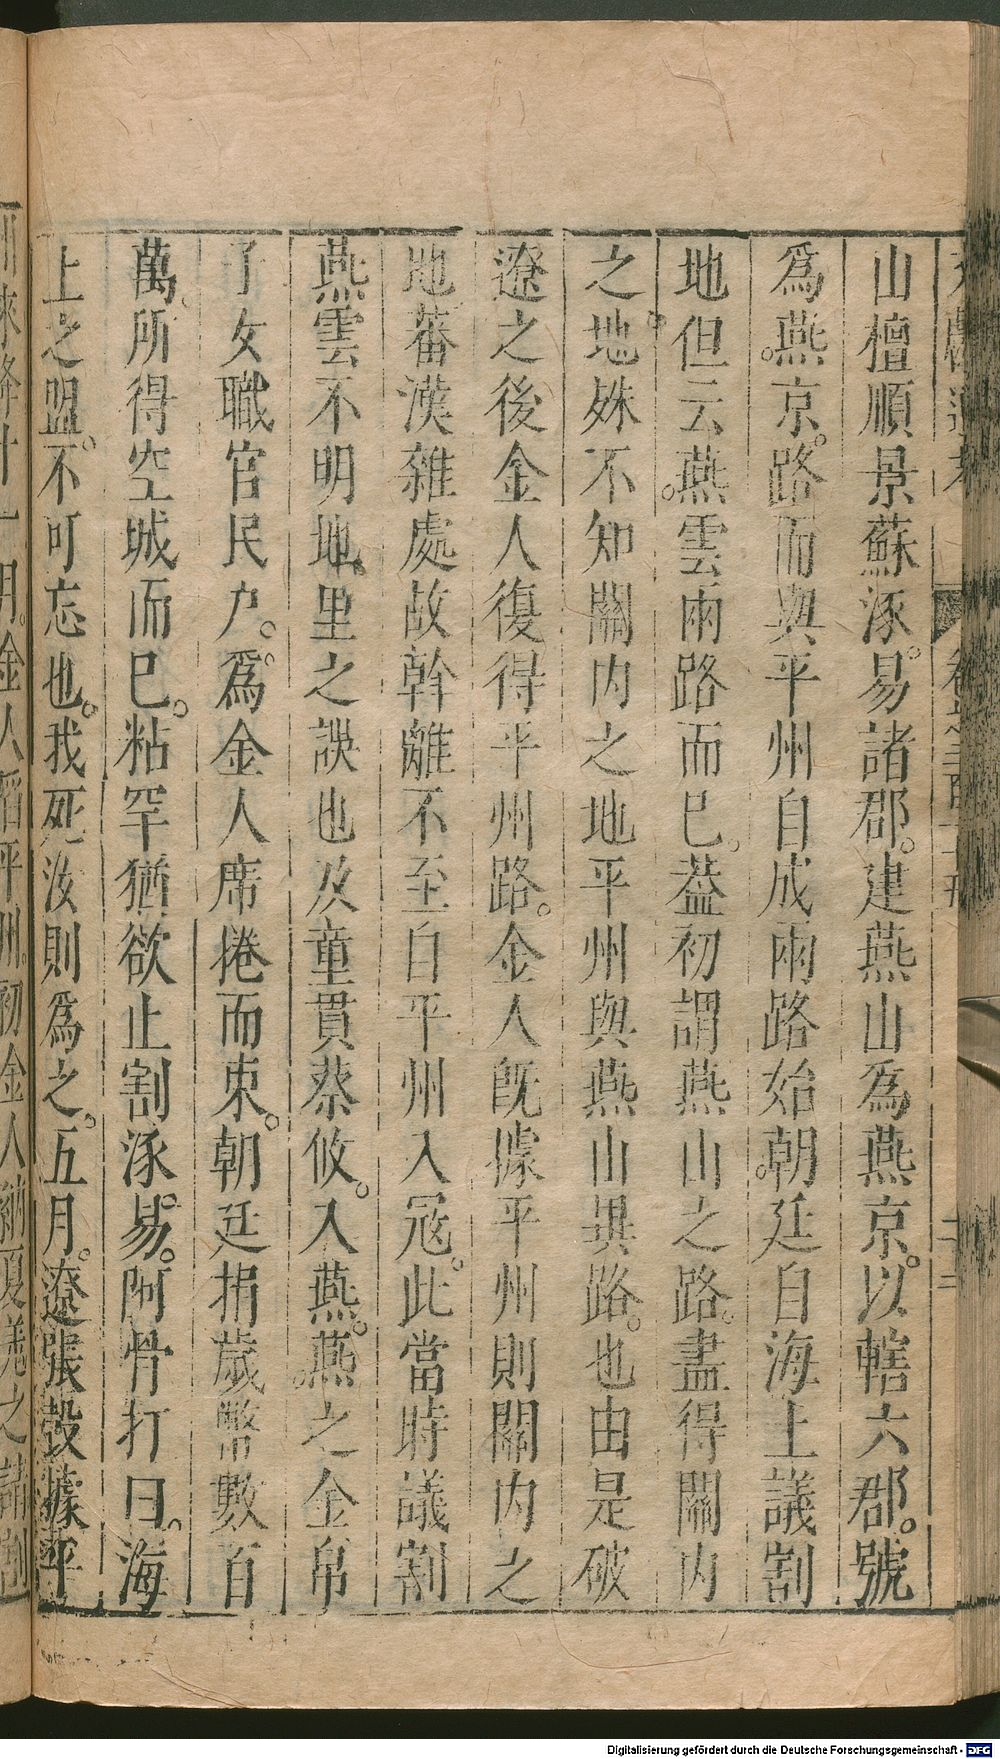 山檀順景蘇涿。易諸郡。建燕山爲燕京。以轄六郡。號
爲。燕京。路而與平州自成兩路始。朝廷自海上議割
地但云。燕雲兩路而已。葢初謂燕山之路。盡得關內
之地。殊不知關內之地平州與燕山異路。也由是破
遼之後金人復得平州路。金人旣據平州則關內之
地蕃漢雜處故斡離不至自平州入冦。此當時議割
燕雲不明地。里之誤也及童貫蔡攸。入燕。燕。之金帛
子女職官民戶。爲。金人席捲而東。朝廷捐歲幣數百
萬。所得空城而已。粘罕猶欲止割涿易。阿骨打曰。海
上之盟。不可忘也。我死汝則爲之。五月。遼張瑴據平
州來降十一月。金人陷平州。初金人納夏羗之請割
二二
Digitalisierung gefördert durch die Deutsche Forschungsgemeinschaft - DFG